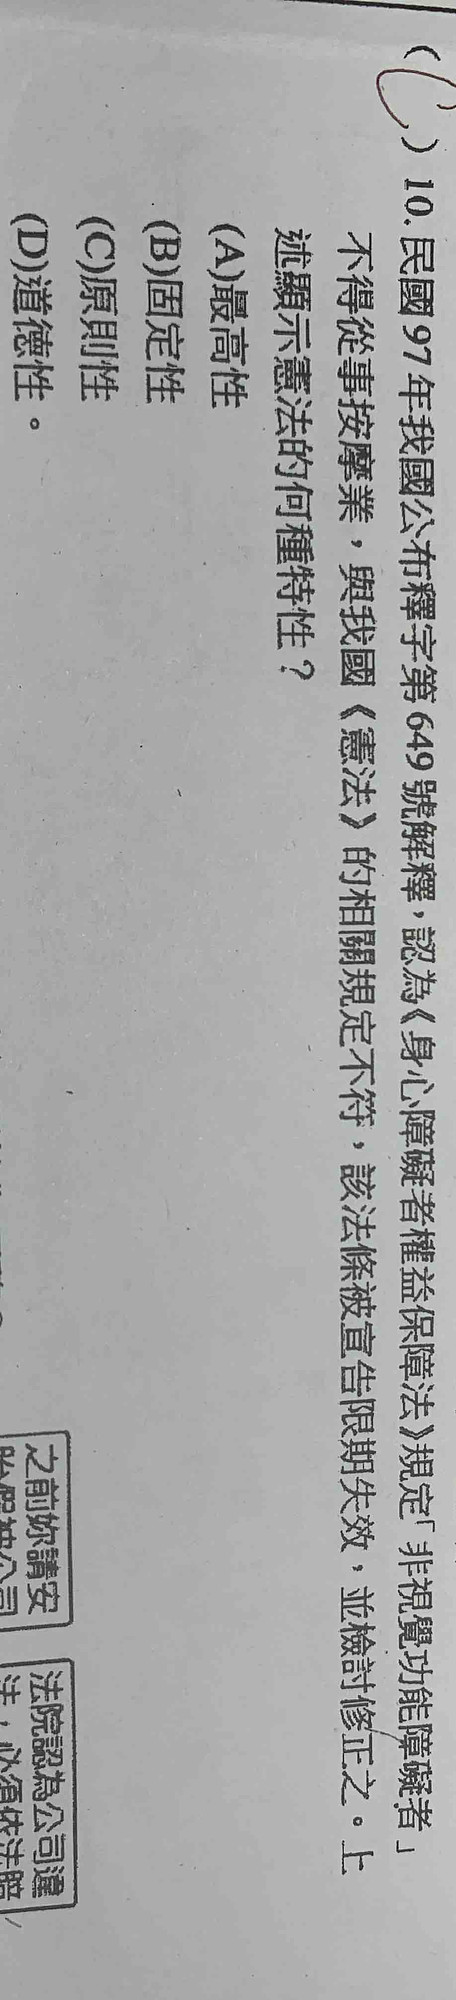 ( C ) 10. 民國 97 年我國公布釋字第 649 號解釋，認為《身心障礙者權益保障法》規定「非視覺功能障礙者」
不得從事按摩業，與我國《憲法》的相關規定不符，該法條被宣告限期失效，並檢討修正之。上
述顯示憲法的何種特性？
(A)最高性
(B)固定性
(C)原則性
(D)道德性。
之前妳請安
胎假被公司
法院認為公司違
法，必須依法賠